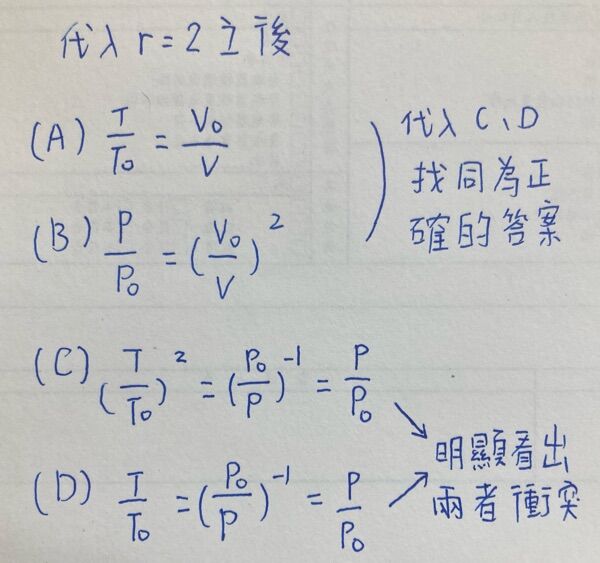 代入 r = 2 之後
(A) T/T₀ = V₀/V
(B) P/P₀ = (V₀/V)²
代入 C、D
找同為正
確的答案
(C) (T/T₀)² = (P₀/P)⁻¹ = P/P₀
(D) T/T₀ = (P₀/P)⁻¹ = P/P₀
明顯看出
兩者衝突